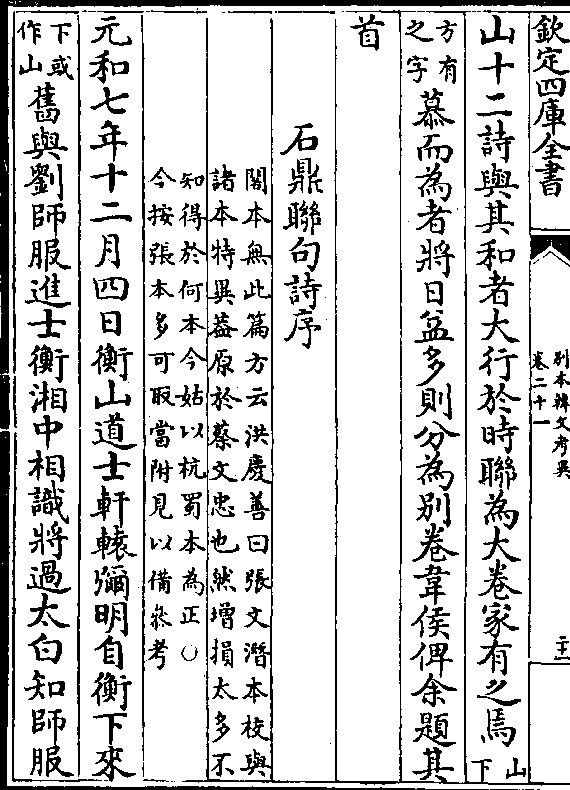 欽定四庫全書
別本韓文考異
卷二十一
山十二詩與其和者大行於時聯為大卷家有之焉山下
方有之字慕而為者將日益多則分為别卷韋侯俾余題其
首
石鼎聯句詩序
閣本無此篇方云洪慶善曰張文潛本校與
諸本特異葢原於蔡文忠也然增損太多不
知得於何本今姑以杭蜀本為正○
今按張本多可取當附見以備叅考
元和七年十二月四日衡山道士軒轅彌明自衡下來
下或作山舊與劉師服進士衡湘中相識將過太白知師服